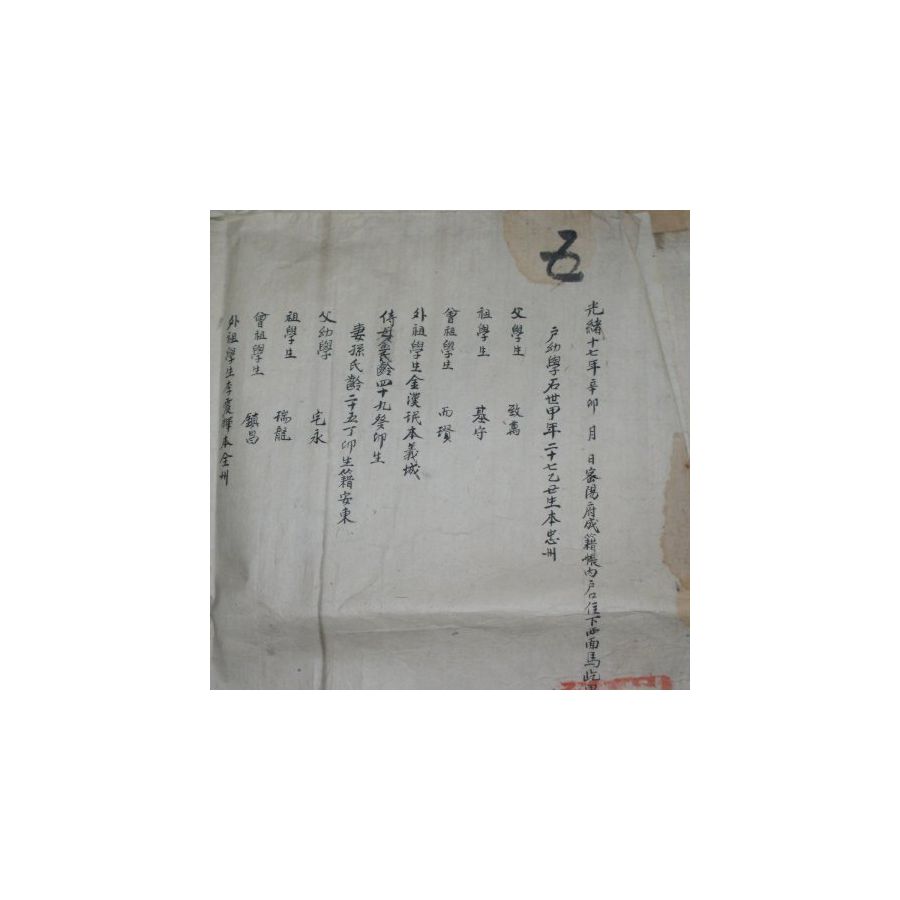 五
光緒十七年辛卯 月 日密陽府成籍帳內戶口住下西面馬屹里
戶幼學石世甲年二十七乙丑生本忠州
父學生 致嵩
祖學生 基守
曾祖學生 而瓚
外祖學生金漢珉本義城
侍母金氏齡四十九癸卯生
妻孫氏齡二十五丁卯生籍安東
父幼學 宅永
祖學生 瑞龍
曾祖學生 鎮昌
外祖學生李震鐸本全州